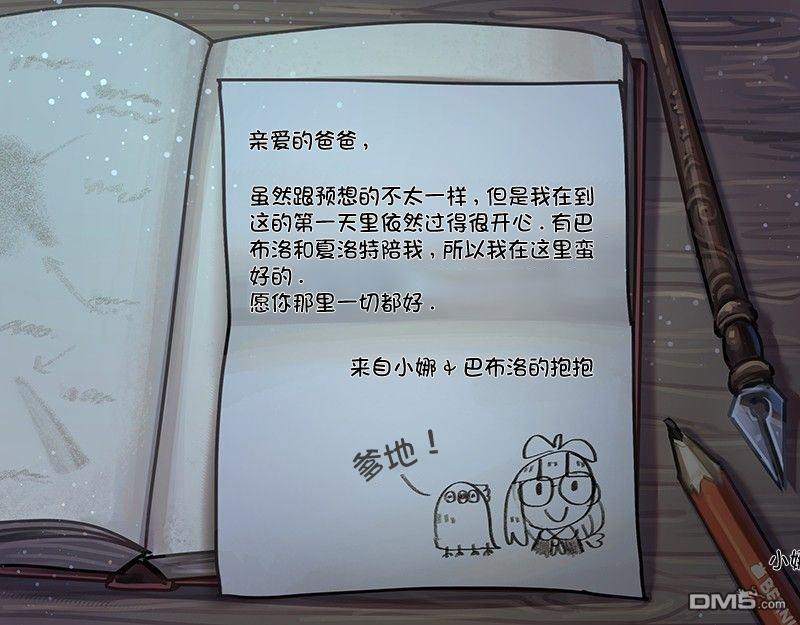 亲爱的爸爸，
虽然跟预想的不太一样，但是我在到
这的第一天里依然过得很开心．有巴
布洛和夏洛特陪我，所以我在这里蛮
好的．
愿你那里一切都好．
来自小娜 & 巴布洛的抱抱
爹地！
小娜
BERN
DM5.com